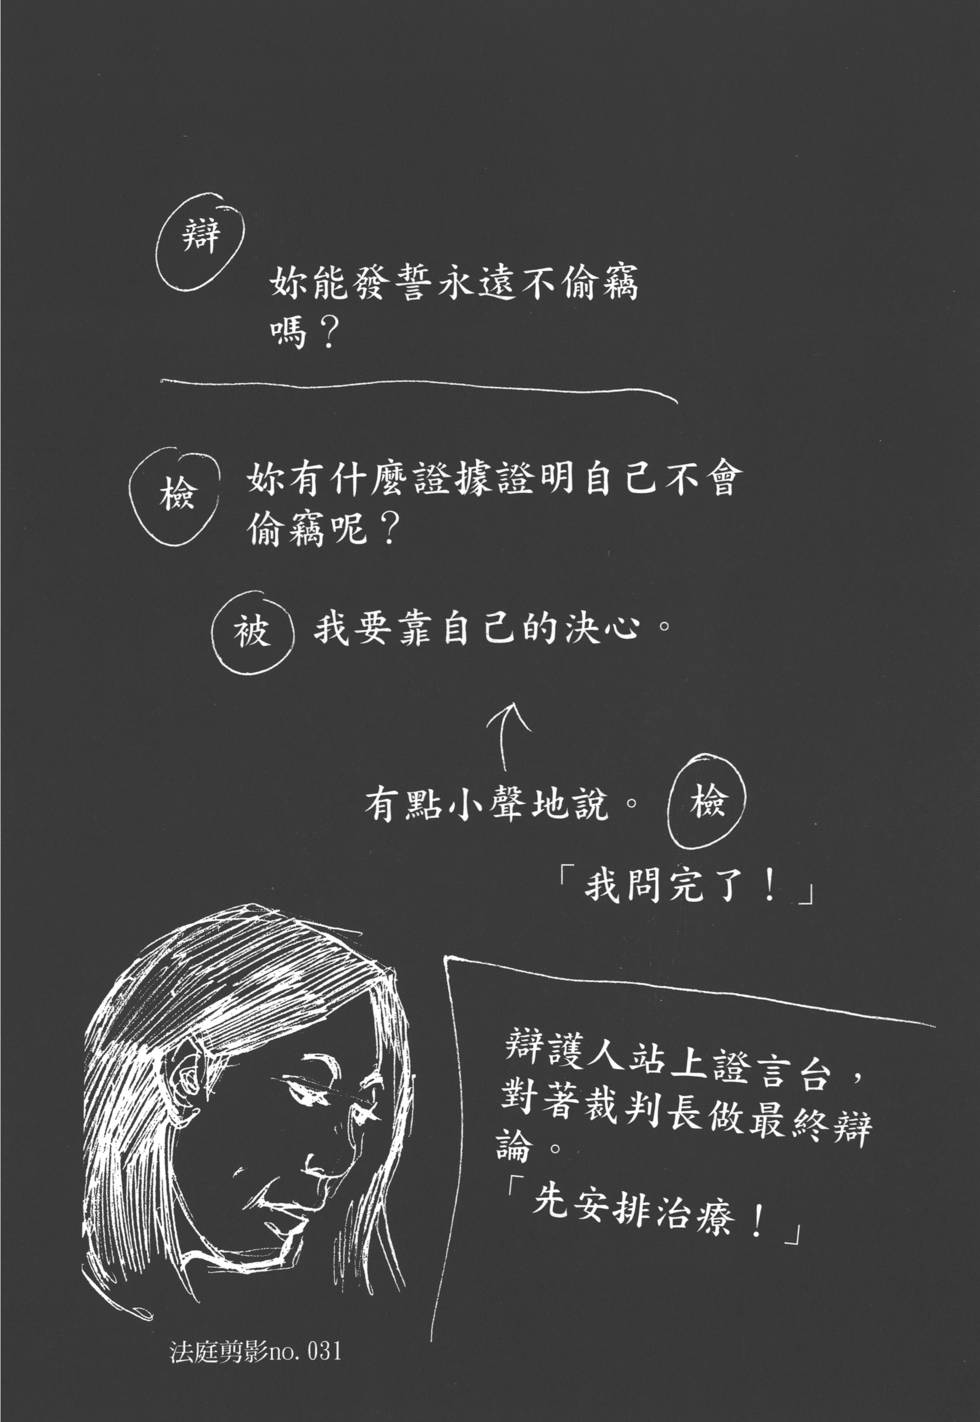 辯
妳能發誓永遠不偷竊
嗎？
檢
妳有什麼證據證明自己不會
偷竊呢？
被
我要靠自己的決心。
有點小聲地說。
檢
「我問完了！」
辯護人站上證言台，
對著裁判長做最終辯
論。
「先安排治療！」
法庭剪影no.031